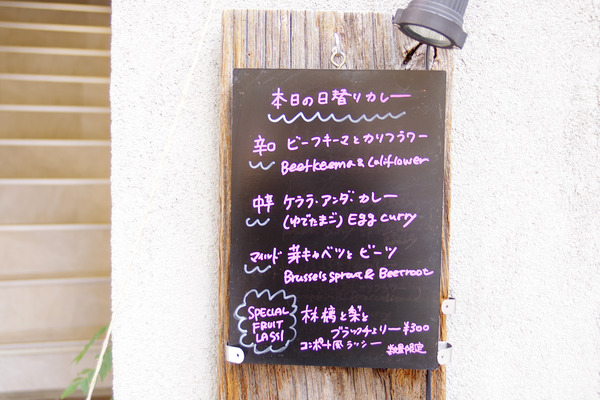 本日の日替りカレー
辛口 ビーフキーマとカリフラワー
Beef keema & Califlower
中辛 ケララ・アンダ・カレー
(ゆでたまご) Egg curry
マイルド 芽キャベツと ビーツ
Brussels sprout & Beetroot
SPECIAL
FRUIT
LASSI
林檎と梨と
ブラックチェリー ¥300
コンポート風ラッシー 数量限定